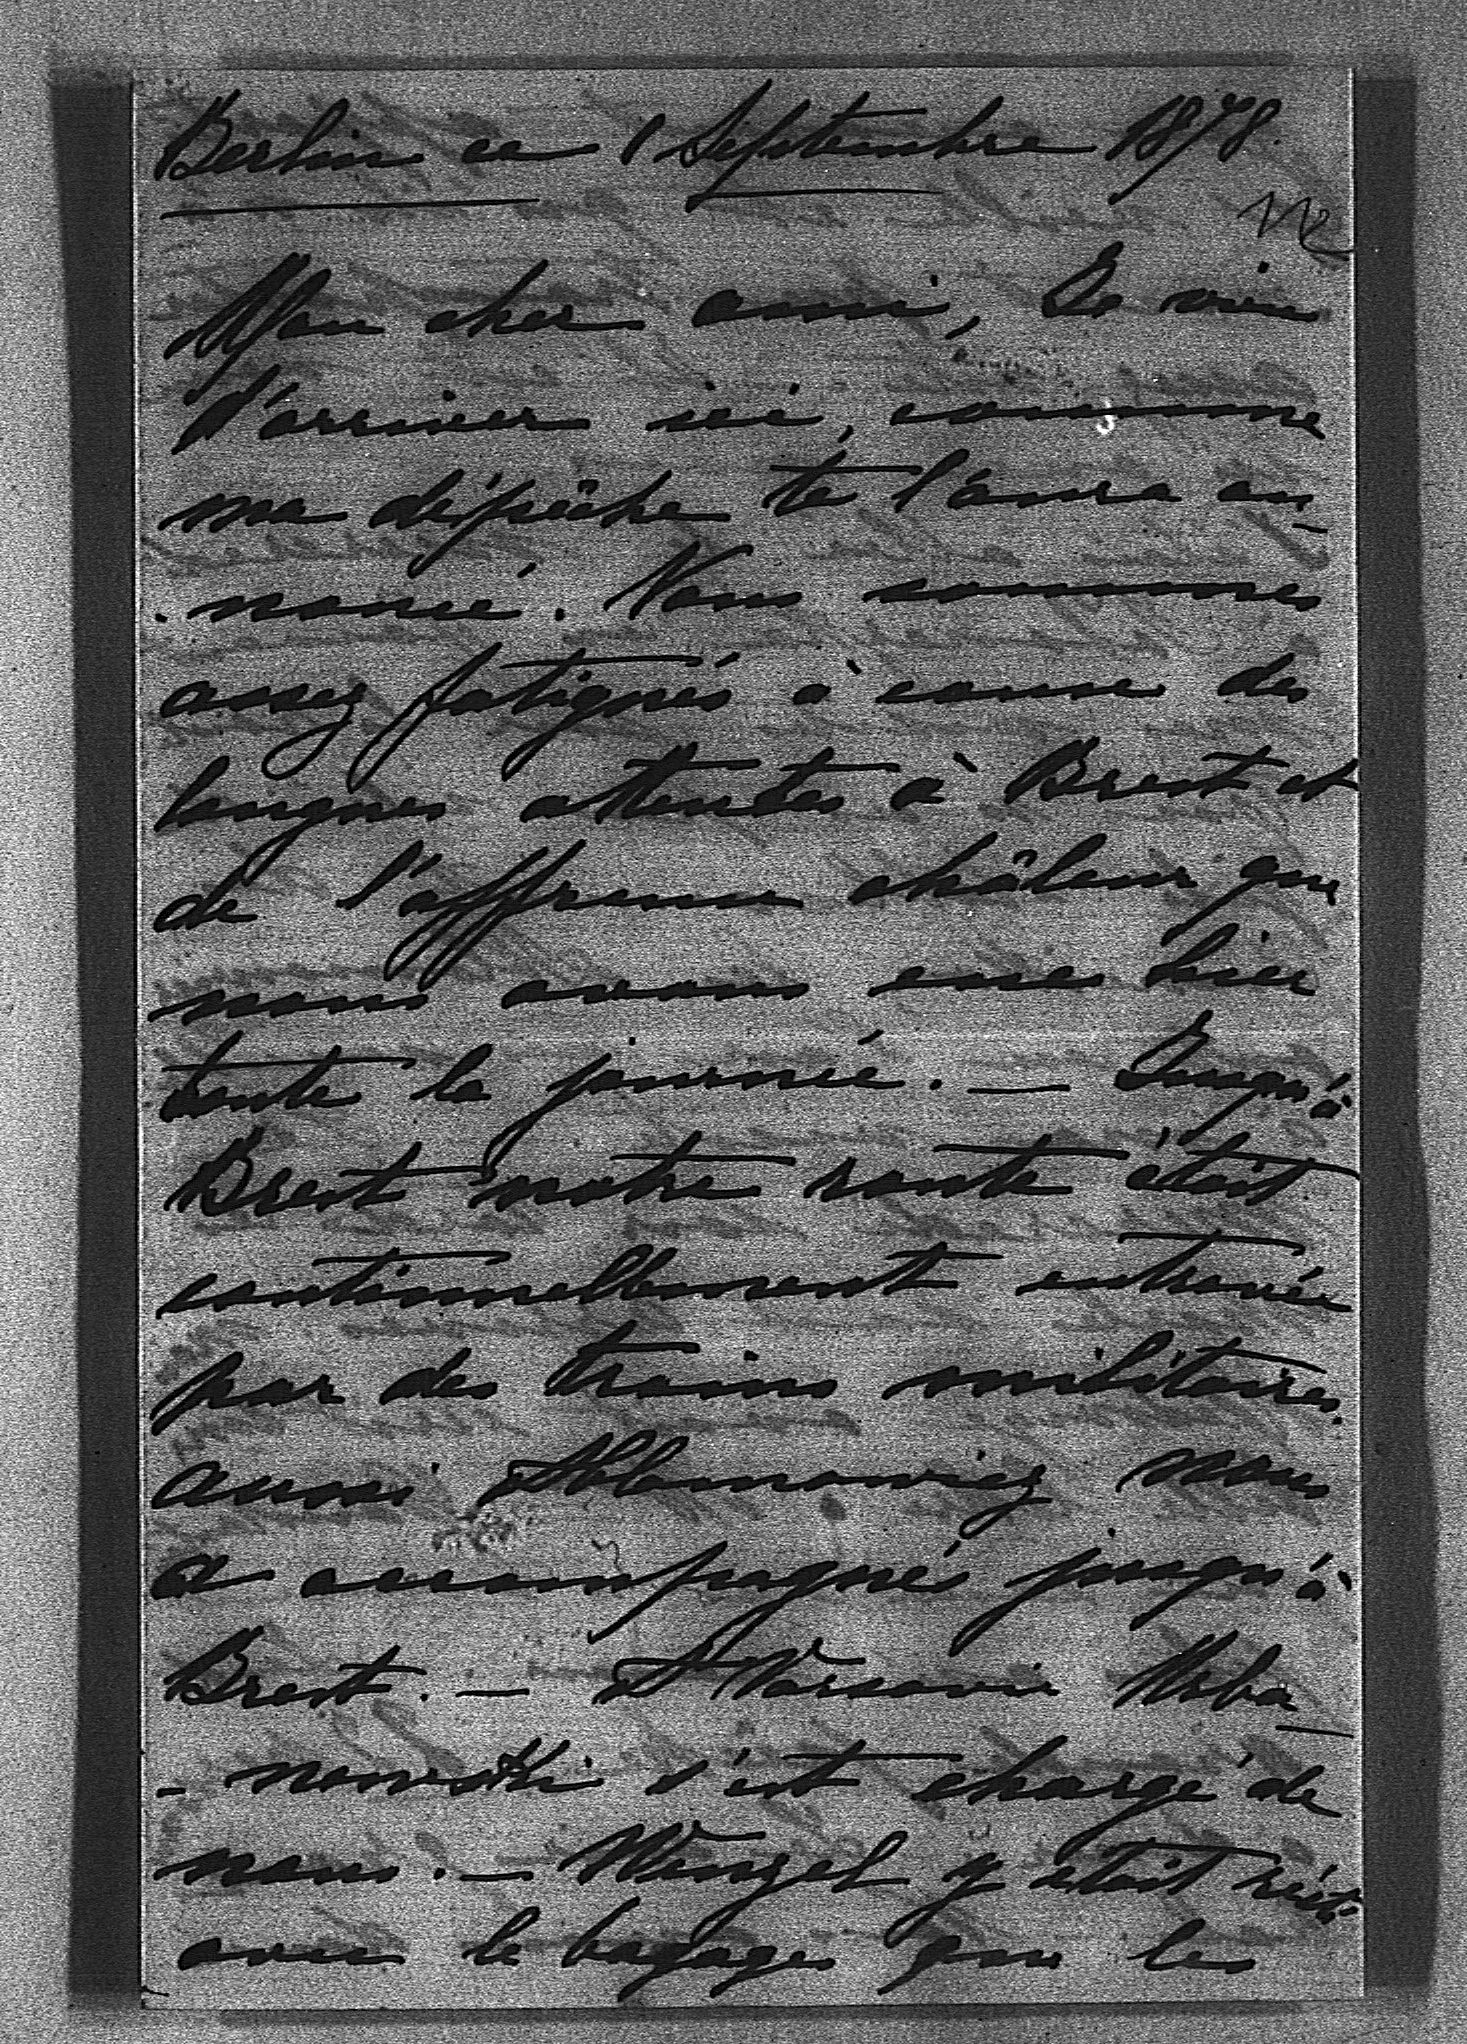 Berlin ce 1 Septembre 1878.
112
Mon cher ami, Je vien
d'arriver ici, comme
ma dépêche te l'aura an-
-noncé. Nous sommes
assez fatigués à cause des
longues attentes à Brest et
de l'affreuse châleur que
nous avons eue hier
toute la journée. — Jusqu'à
Brest notre route était
continuellement entravée
par des trains militaires.
aussi Ablamowicz nous
a accompagnés jusqu'à
Brest. — A Varsovie Urba-
-nowski s'est chargé de
nous. — Wenzel y était resté
avec le bagage que les